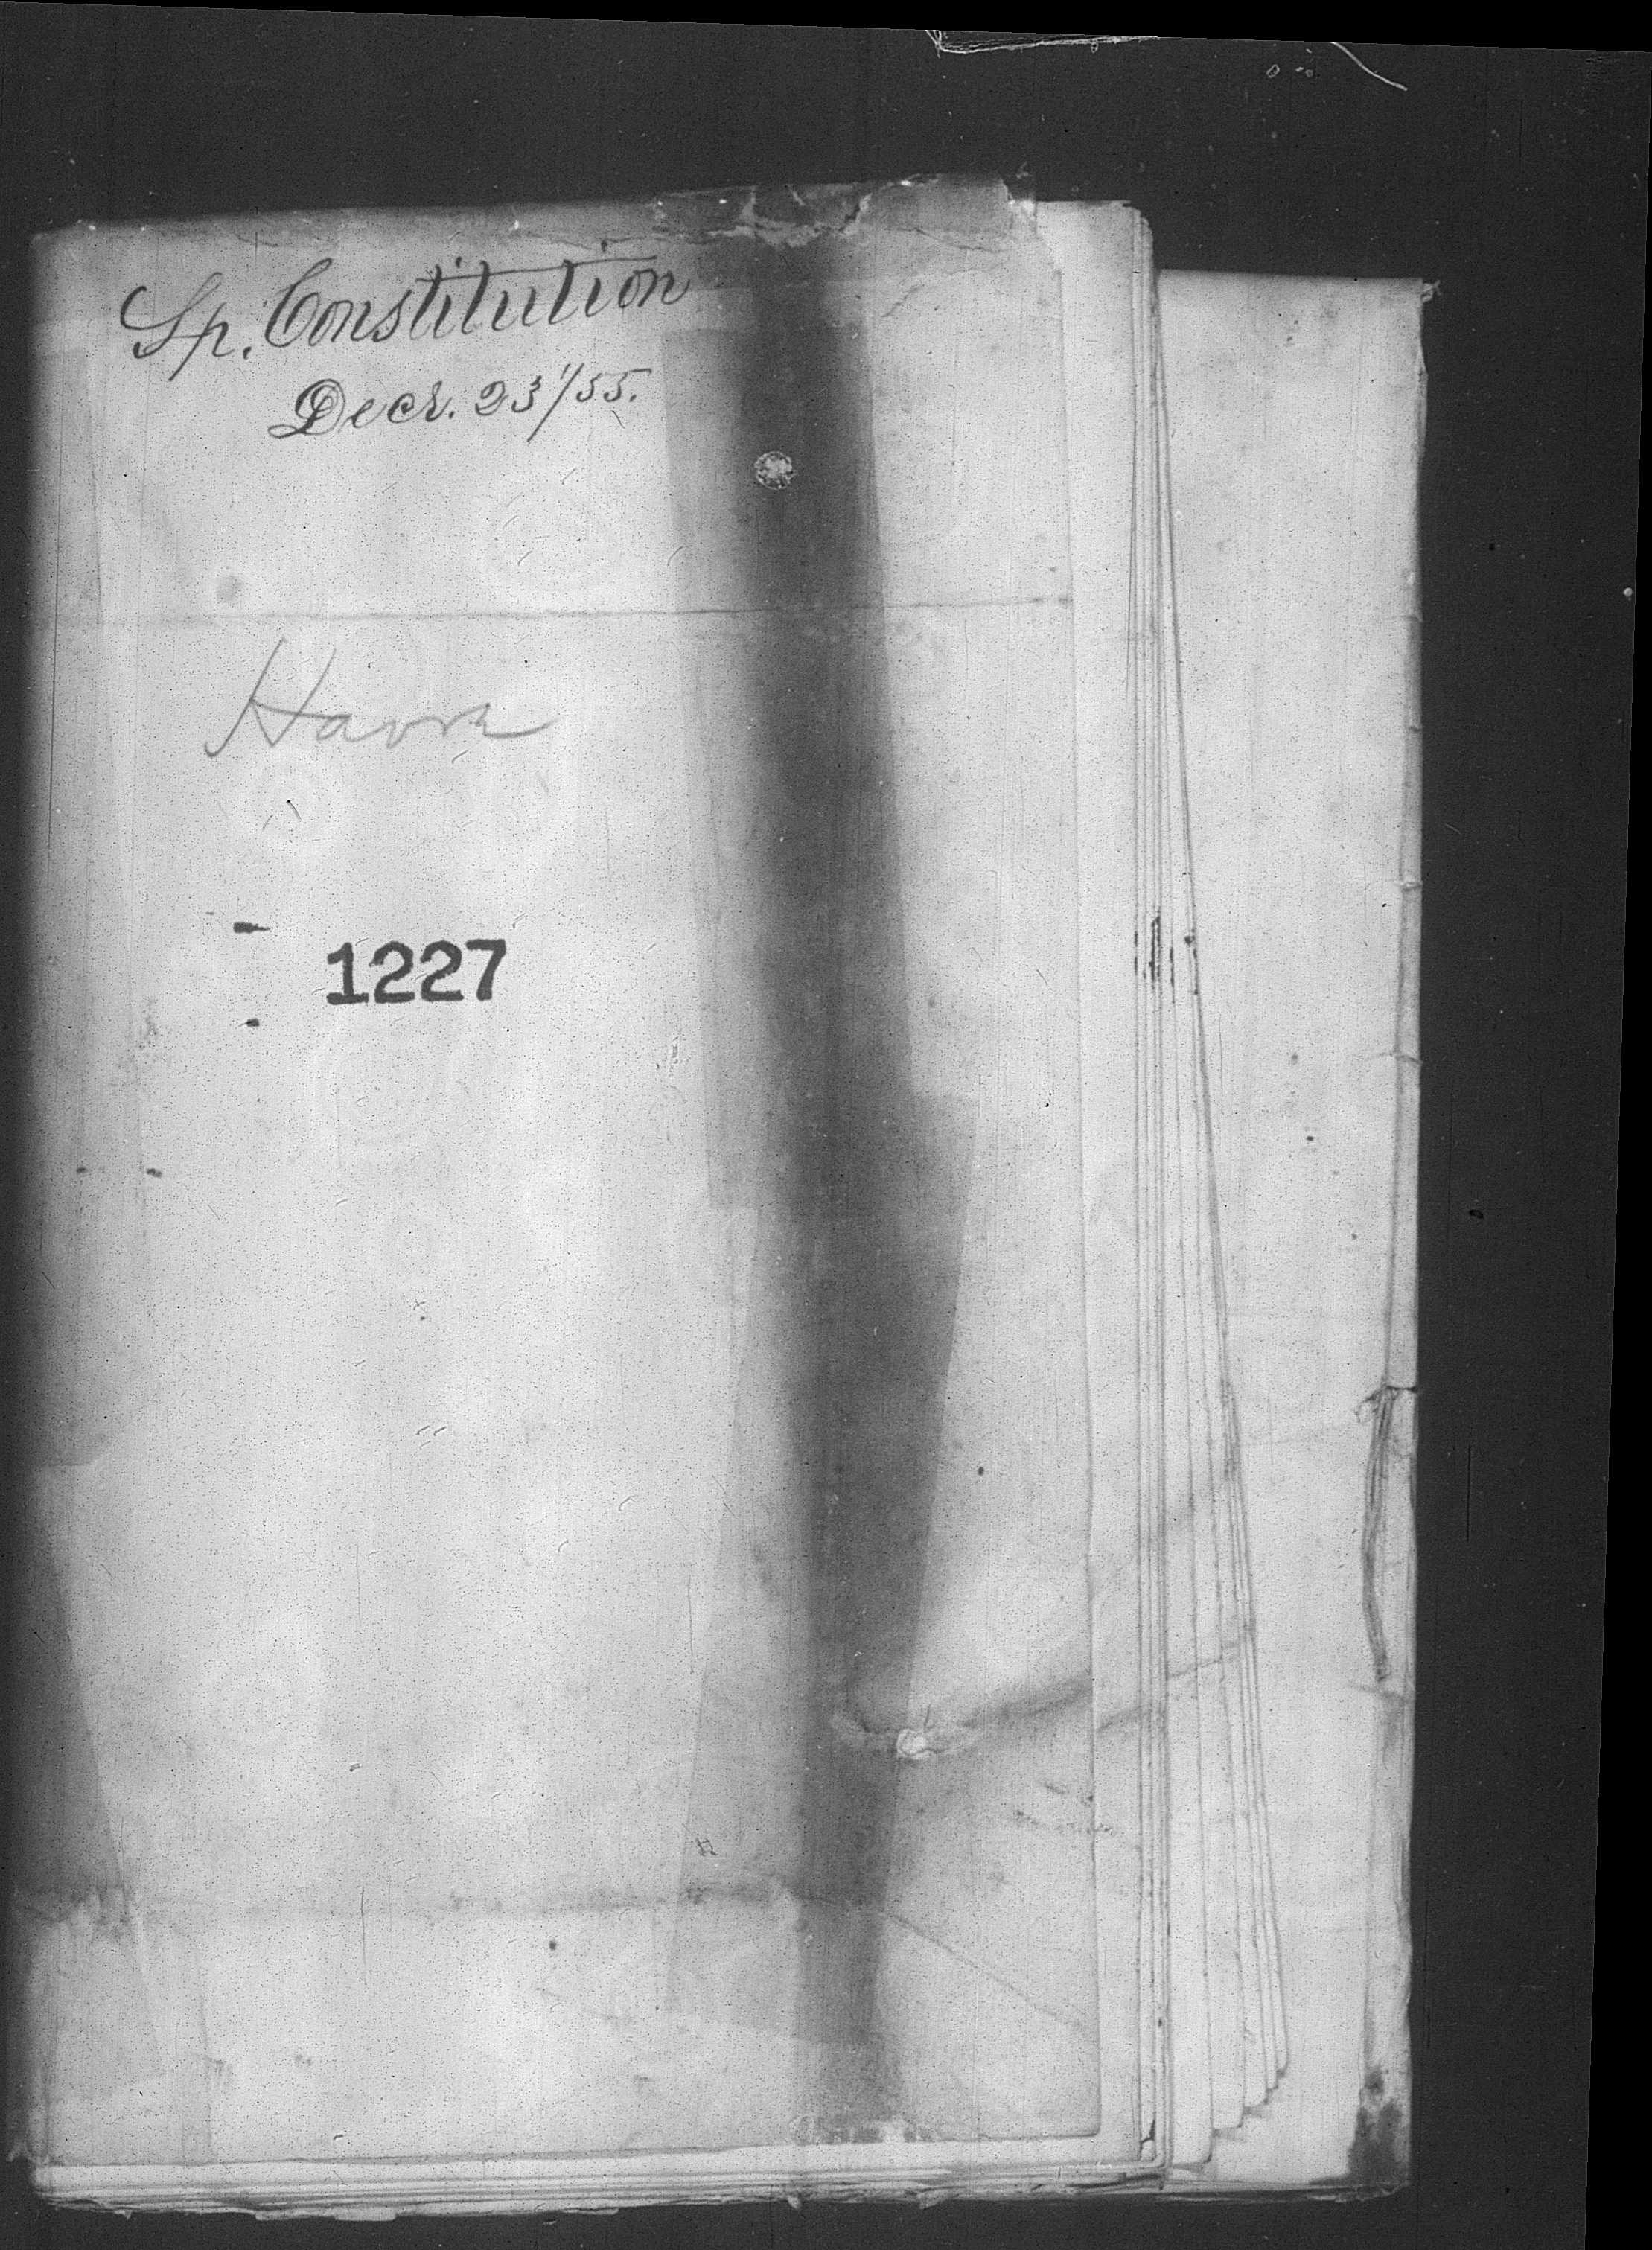 Sp. Constitution
Decr. 23/55.
Havre
1227